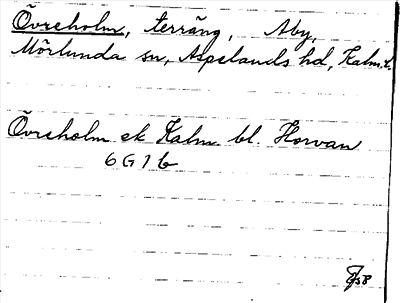 Övreholm, terräng, Åby,
Mörlunda sn, Aspelands hd, Kalm. l.
Övreholm ek Kalm. bl. Horvan
6 G 7 b